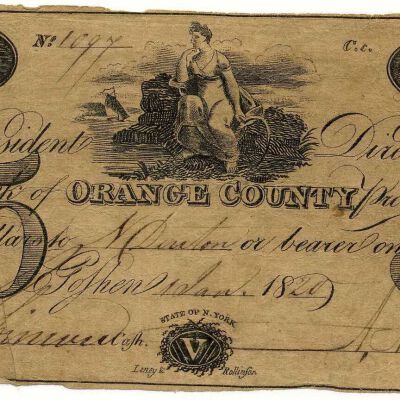 No. 1097 C.c.
sident Dire
k of ORANGE COUNTY pro
llars to N. Denton or bearer on
Goshen 1 Jan. 1820
Cash.
STATE OF N-YORK
V
Leney & Rollinson